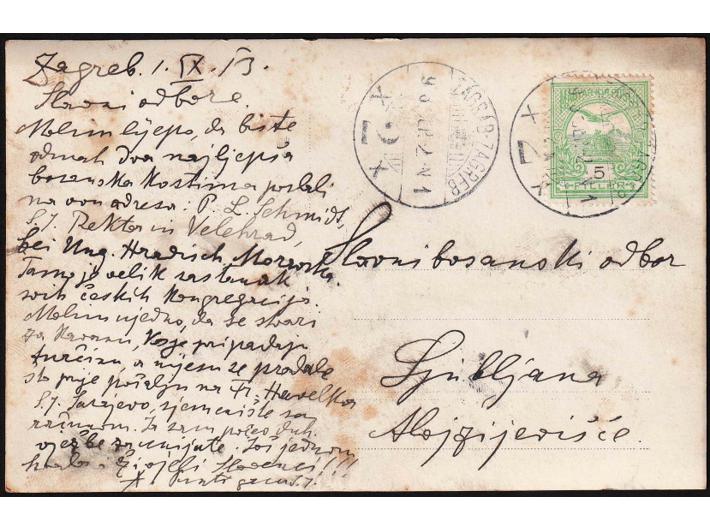 Zagreb. 1. IX. 13.
Slavni odbore.
Molim lijepo, da biste
odmah dva najljepša
bosanska kostima poslali
na ovu adresu: P. L. Schmidt,
S.J. Rektor in Velehrad,
bei Ung. Hradisch, Moravska.
Tamo je velik sastanak
svih českih kongregacija.
Molim ujedno, da se stvari
za Kavanu, koje pripadaju
Turčinu, a nijesu se prodale
što prije pošalju na Fr. Havelka
S.J. Sarajevo, sjemenište sa
računom. Ja sam počeo duh.
vježbe Još jednom
hvala. Živjeli Slovenci!!!
ZÁGRÁB-ZAGREB
5
FILLÉR
Slavni bosanski odbor
Ljubljana
Alojzijevišće.